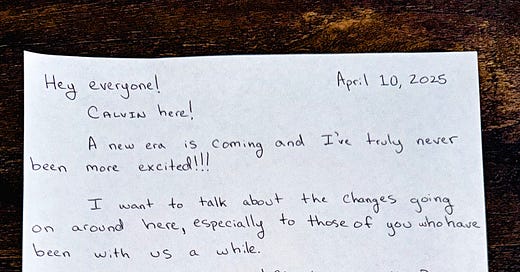 Hey everyone! April 10, 2025
CALVIN here!
A new era is coming and I've truly never
been more excited!!!
I want to talk about the changes going
on around here, especially to those of you who have
been with us a while.